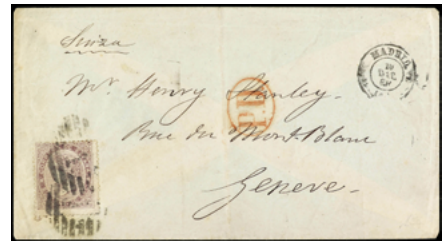 Suiza
MADRID
DIC
Mr. Henry Stanley.
PD
Rue du Mont-Blanc
Geneve.